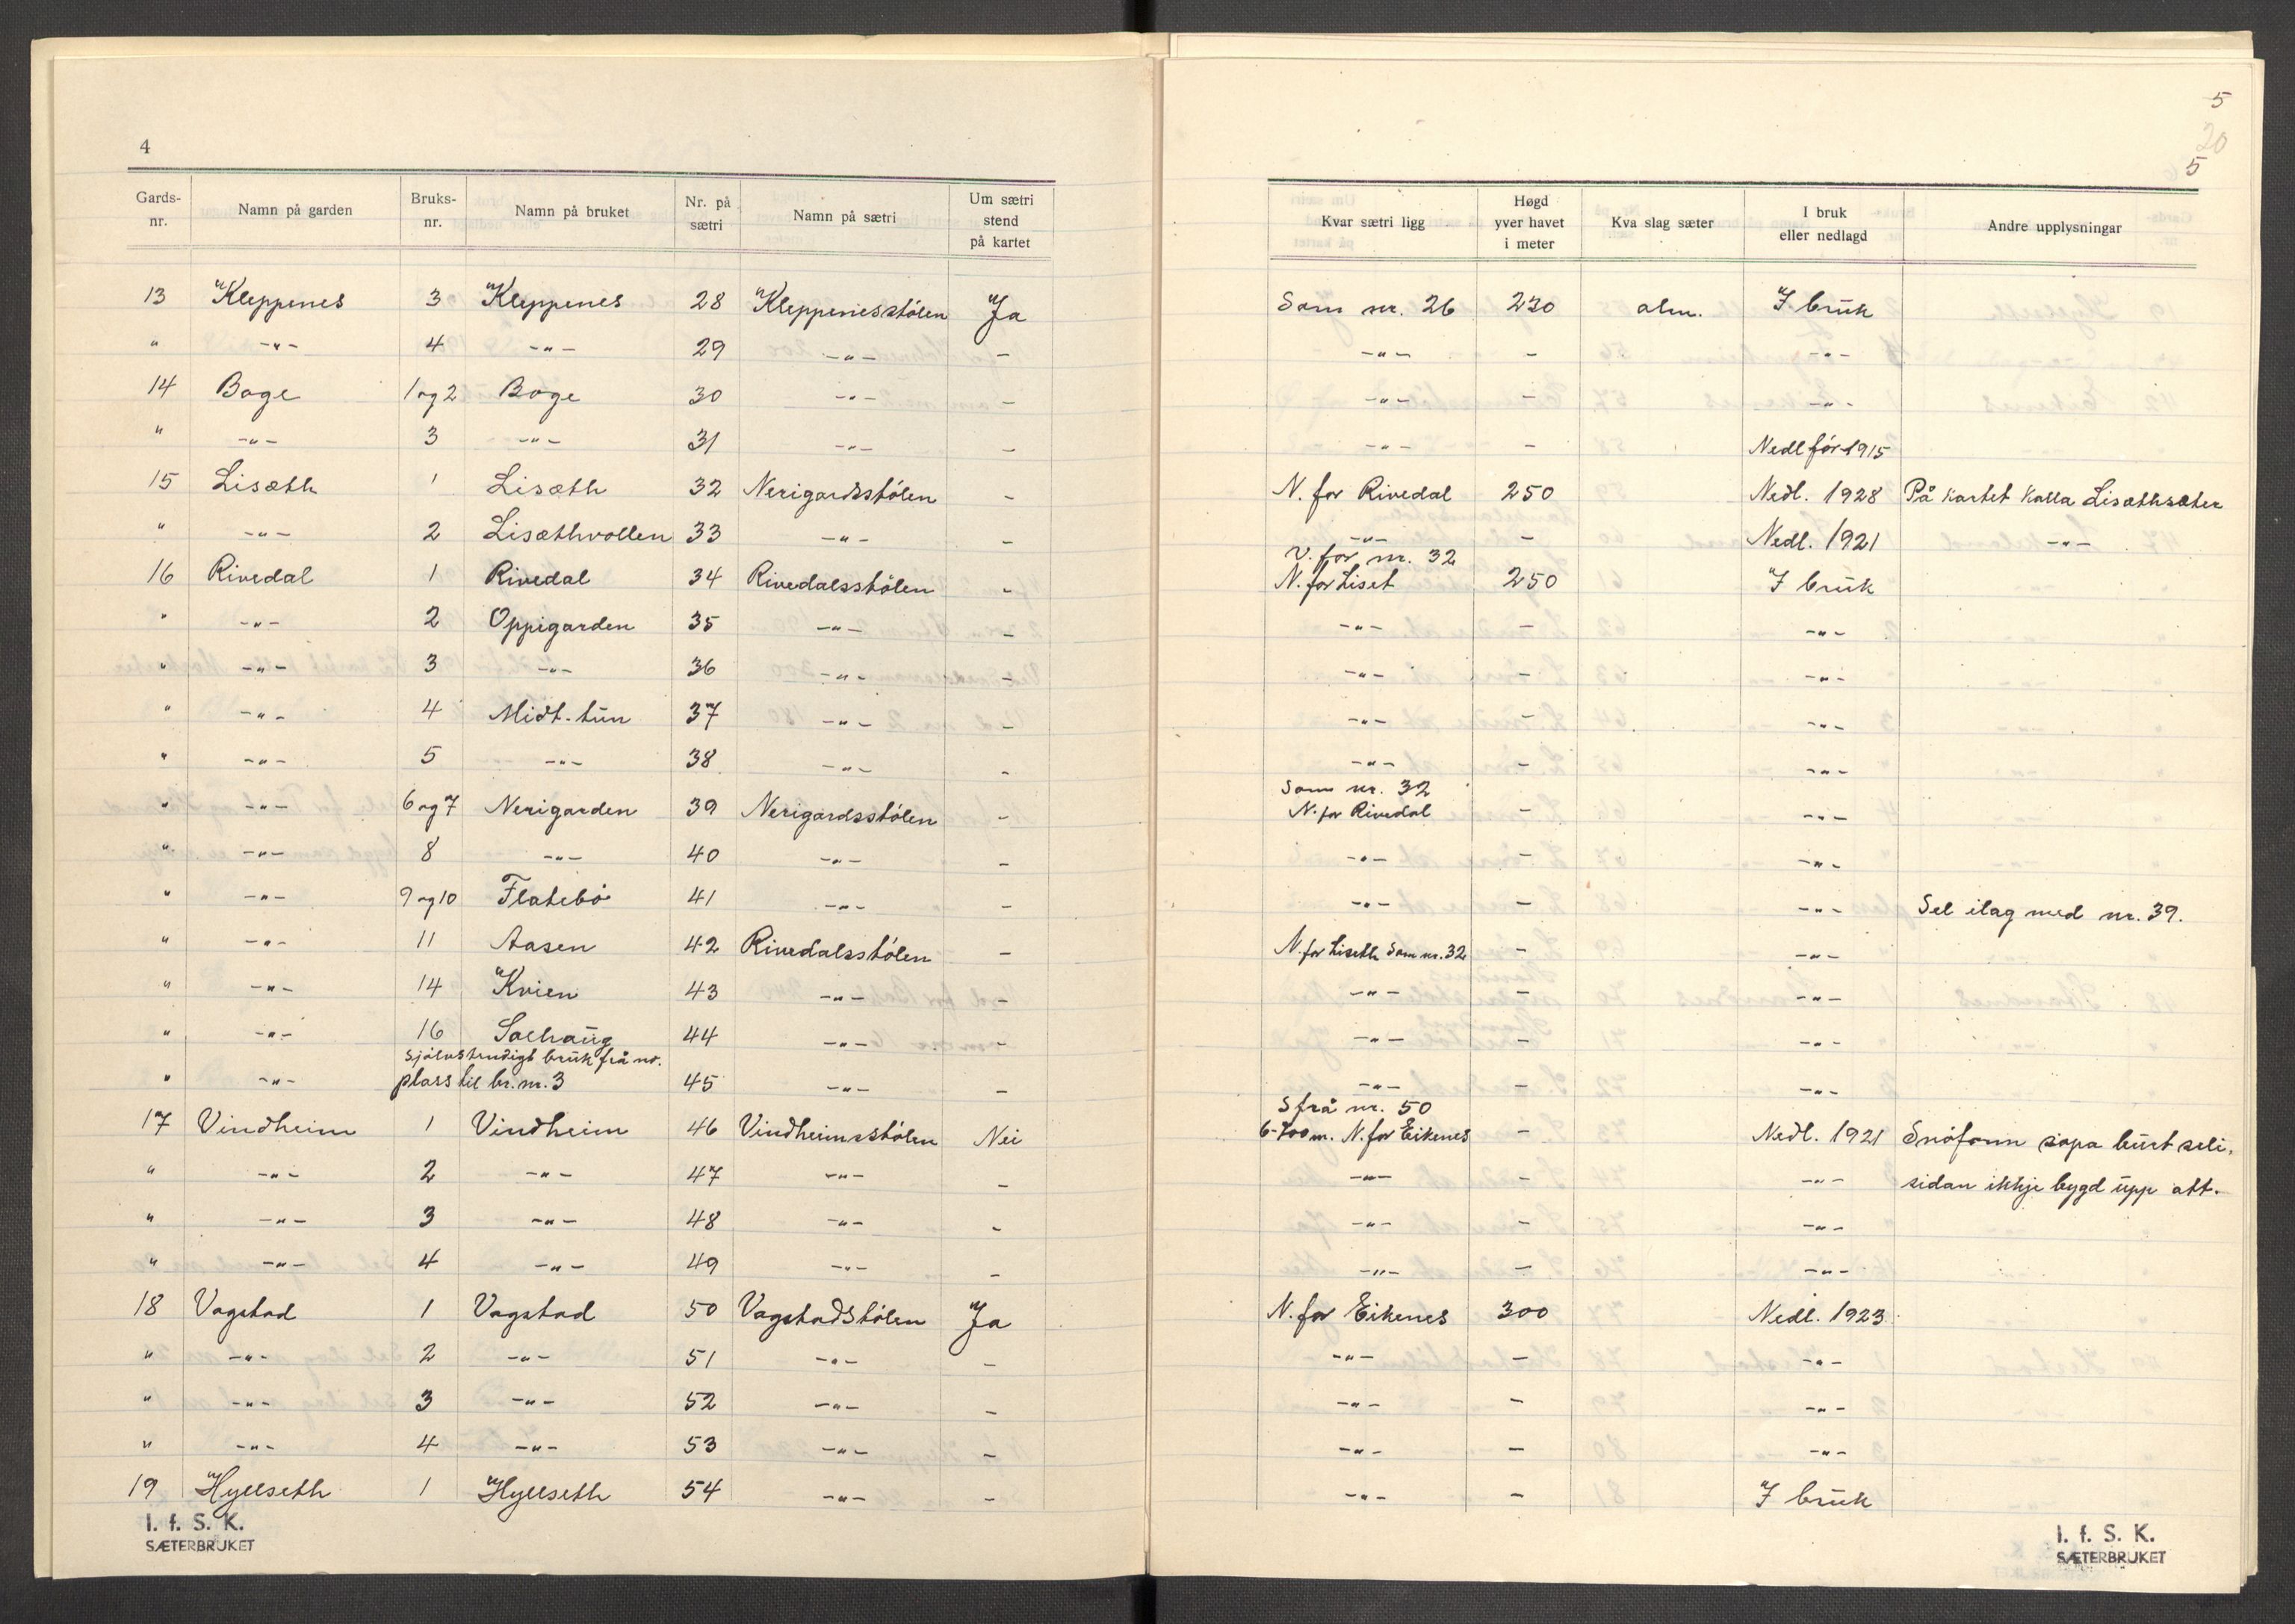 4
Gards-nr. | Namn på garden | Bruks-nr. | Namn på bruket | Nr. på sætri | Namn på sætri | Um sætri stend på kartet
13 Kleppenes 3 Kleppenes 28 Kleppenesstølen Ja
" -"- 4 -"- 29 -"- -
14 Boge 1 og 2 Boge 30 -"- -
" -"- 3 -"- 31 -"- -
15 Lisæth 1 Lisæth 32 Nerigardsstølen -
" -"- 2 Lisæthvollen 33 -"- -
16 Rivedal 1 Rivedal 34 Rivedalsstølen -
" -"- 2 Oppigarden 35 -"- -
" -"- 3 -"- 36 -"- -
" -"- 4 Midt-tun 37 -"- -
" -"- 5 -"- 38 -"- -
" -"- 6 og 7 Nerigarden 39 Nerigardsstølen -
" -"- 8 -"- 40 -"- -
" -"- 9 og 10 Flatebø 41 -"- -
" -"- 11 Aasen 42 Rivedalsstølen -
" -"- 14 Kvien 43 -"- -
" -"- 16 Solhaug 44 -"- -
sjølvstendigt bruk frå no.
" -"- plass til br. nr. 3 45 -"- -
17 Vindheim 1 Vindheim 46 Vindheimsstølen Nei
" -"- 2 -"- 47 -"- -
" -"- 3 -"- 48 -"- -
" -"- 4 -"- 49 -"- -
18 Vagstad 1 Vagstad 50 Vagstadstølen Ja
" -"- 2 -"- 51 -"- -
" -"- 3 -"- 52 -"- -
" -"- 4 -"- 53 -"- -
19 Hyllseth 1 Hyllseth 54 -"- -
I. f. S. K.
SÆTERBRUKET
5
20
5
Kvar sætri ligg | Høgd yver havet i meter | Kva slag sæter | I bruk eller nedlagd | Andre upplysningar
Som nr. 26 230 alm. I bruk
-"- - -"-
-"- - -"-
-"- - Nedl før 1915
N. for Rivedal 250 Nedl. 1928 På kartet kalla Lisæthsæter
-"- - Nedl. 1921 -"-
V. for nr. 32
N. for Liset 250 I bruk
-"- - -"-
-"- - -"-
-"- - -"-
-"- - -"-
Som nr. 32
N. for Rivedal - -"-
-"- - -"-
-"- - -"- Sel ilag med nr. 39.
N. for Liseth Som nr. 32 - -"-
-"- - -"-
-"- - -"-
-"- - -"-
S frå nr. 50
6-700 m. N. for Eikenes - Nedl. 1921 Snøfonn sopa burt seli,
-"- - -"- sidan ikkje bygd upp att.
-"- - -"-
-"- - -"-
N. for Eikenes 300 Nedl. 1923
-"- - -"-
-"- - -"-
-"- - -"-
-"- - I bruk
I. f. S. K.
SÆTERBRUKET